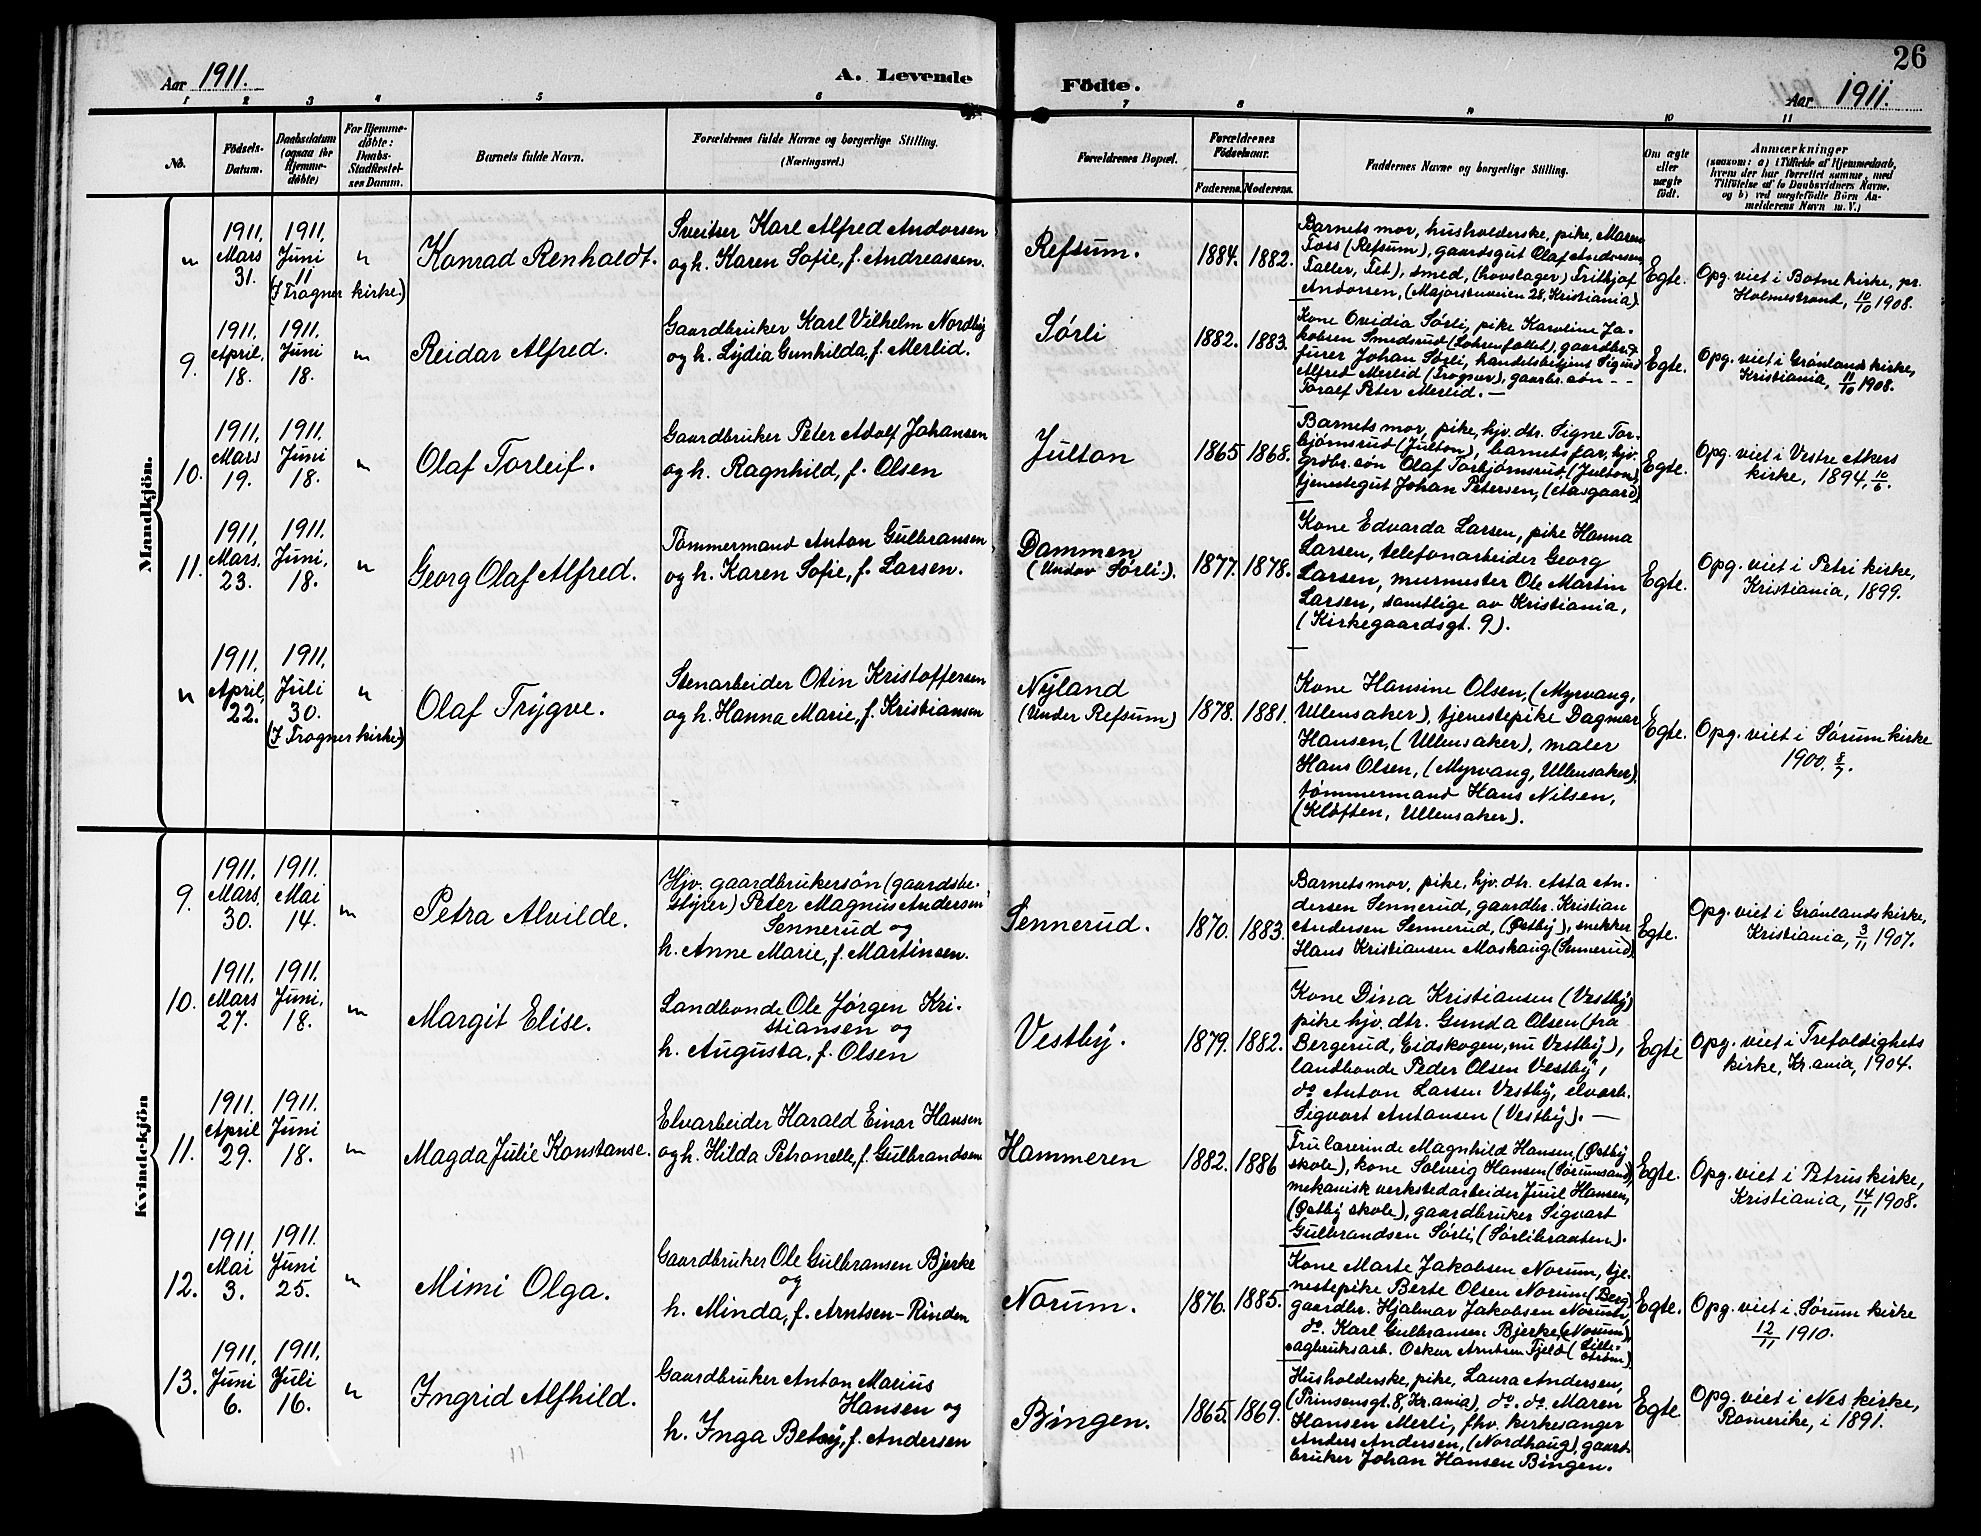 26
Aar 1911.
A. Levende
Födte.
Aar 1911.
1 2 3 4 5 6 7 8 9 10 11
No.
Födsels-
Datum.
Daabsdatum
(ogsaa for
Hjemme-
döbte)
For Hjemme-
döbte:
Daabs-
Stadfæstel-
ses Datum.
Barnets fulde Navn.
Forældrenes fulde Navne og borgerlige Stilling.
(Næringsvei.)
Forældrenes Bopæl.
Forældrenes
Födselsaar.
Faderens.
Moderens.
Faddernes Navne og borgerlige Stilling.
Om ægte
eller
uægte
födt.
Anmærkninger
(saasom: a) i Tilfælde af Hjemmedaab,
hvem der har forrettet samme, med
Tilföielse af to Daabsvidners Navne,
og b) ved uægtefödte Börn An-
melderens Navn m. V.)
Mandkjön.
"
1911.
Mars
31.
1911.
Juni
11
(I Frogner kirke.)
"
Konrad Renholdt.
Sveitser Karl Alfred Andorsen
og h. Karen Sofie, f. Andreassen.
Refsum.
1884. 1882.
Barnets mor, husholderske, pike, Maren
Foss (Refsum), gaardsgut Olaf Andorsen
Faller, Fet), smed, (hovslager) Frithjof
Andorsen, (Majorstuveien 28, Kristiania)
Egte.
Opg. viet i Botne kirke, pr.
Holmestrand, 10/10 1908.
9.
1911.
April,
18.
1911.
Juni
18.
"
Reidar Alfred.
Gaardbruker Karl Vilhelm Nordby
og h. Lydia Gunhilda, f. Merlid.
Sørli
1882. 1883.
Kone Ovidia Sørli, pike Karoline Ja-
kobsen Smedsrud gaardbr.
Johan Sørli, handelsbetjent Sigurd
Alfred Merlid (Frogner), gaardbr. søn - -
Toralf Peter Merlid. —
Egte.
Opg. viet i Grønlands kirke,
Kristiania, 11/10 1908.
10.
1911.
Mars
19.
1911.
Juni
18.
"
Olaf Torleif.
Gaardbruker Peter Adolf Johansen
og h. Ragnhild, f. Olsen
Julton
1865 1868.
Barnets mor, pike, hjv. dtr. Signe Tor-
bjørnsrud (Julton), barnets far, hjv.
grdbr. søn Olaf Torbjørnsrud, (Julton),
tjenestegut Johan Petersen, (Aasgaard)
Egte.
Opg. viet i Vestre Akers
kirke, 1894, 10/6.
11.
1911,
Mars.
23.
1911.
Juni,
18.
"
Georg Olaf Alfred.
Tømmermand Anton Gulbransen
og h. Karen Sofie, f. Larsen.
Dammen
(Under Sørli).
1877. 1878.
Kone Edvarda Larsen, pike Hanna
Larsen, telefonarbeider Georg
Larsen, murmester Ole Martin
Larsen, samtlige av Kristiania,
(Kirkegaardsgt. 9).
Egte.
Opg. viet i Petri kirke,
Kristiania, 1899.
"
1911.
April,
22.
1911.
Juli
30.
(I Frogner kirke)
"
Olaf Trygve.
Stenarbeider Otin Kristoffersen
og h. Hanna Marie, f. Kristiansen
Nyland
(Under Refsum)
1878. 1881.
Kone Hansine Olsen, (Myrvang,
Ullensaker), tjenestepike Dagmar
Hansen, (Ullensaker), maler
Hans Olsen, (Myrvang, Ullensaker),
tømmermand Hans Nilsen,
(Kløften, Ullensaker).
Egte.
Opg. viet i Sørum kirke
1900. 8/7.
Kvindekjön
9.
1911.
Mars,
30.
1911.
Mai
14.
"
Petra Alvilde.
Hjv. gaardbrukersøn (gaardsbe-
styrer) Peter Magnus Andersen
Sennerud og
h. Anne Marie, f. Martinsen.
Sennerud.
1870. 1883.
Barnets mor, pike, hjv. dtr. Asta An-
dersen Sennerud, gaardbr. Kristian
Andersen Sennerud, (Østby), snekker
Hans Kristiansen Maskaug (Sennerud)
Egte.
Opg. viet i Grønlands kirke,
Kristiania, 3/11 1907.
10.
1911.
Mars
27.
1911.
Juni,
18.
"
Margit Elise.
Landbonde Ole Jørgen Kri-
stiansen og
h. Augusta, f. Olsen
Vestby.
1879. 1882.
Kone Dina Kristiansen (Vestby)
pike hjv. dtr. Gunda Olsen (fra
Bergerud, Eidskogen, nu Vestby),
landbonde Peder Olsen Vestby,
do Anton Larsen Vestby, elvarb.
Sigvart Antonsen (Vestby). —
Egte
Opg. viet i Trefoldighets
kirke, Kr.ania, 1904.
11.
1911.
April
29.
1911.
Juni
18.
"
Magda Julie Konstanse.
Elvarbeider Harald Einar Hansen
og h. Hilda Petronelle, f. Gulbrandsen
Hammeren
1882. 1886
Fru lærerinde Magnhild Hansen, (Østby
skole), kone Solveig Hansen (Sørumsand),
mekanisk verkstedarbeider Juul Hansen,
(Østby skole), gaardbruker Sigvart
Gulbrandsen Sørli, (Sørlibraaten).
Egte.
Opg. viet i Petrus kirke,
Kristiania, 14/11 1908.
12.
1911.
Mai
3.
1911.
Juni
25.
"
Mimi Olga.
Gaardbruker Ole Gulbransen Bjerke
og
h. Minda, f. Arntsen-Rinden
Norum.
1876. 1885.
Kone Marte Jakobsen Norum, tje-
nestepike Berte Olsen Norum (Berg)
gaardbr. Hjalmar Jakobsen Norum,
do. Karl Gulbransen Bjerke, (Norum),
sagbruksarb. Oskar Arntsen Fjeld (Lille-
strøm)
Egte.
Opg. viet i Sørum kirke
12/11 1910.
13.
1911.
Juni
6.
1911.
Juli
16.
"
Ingrid Alfhild.
Gaardbruker Anton Marius
Hansen og
h. Inga Betsy, f. Andersen
Bingen.
1865. 1869.
Husholderske, pike, Laura Andersen,
(Prinsensgt. 8, Kr.ania), do. do. Maren
Hansen Merli, fhv. kirkesanger
Anders Andersen, (Nordhaug), gaard-
bruker Johan Hansen Bingen.
Egte.
Opg. viet i Nes kirke,
Romerike, i 1891.